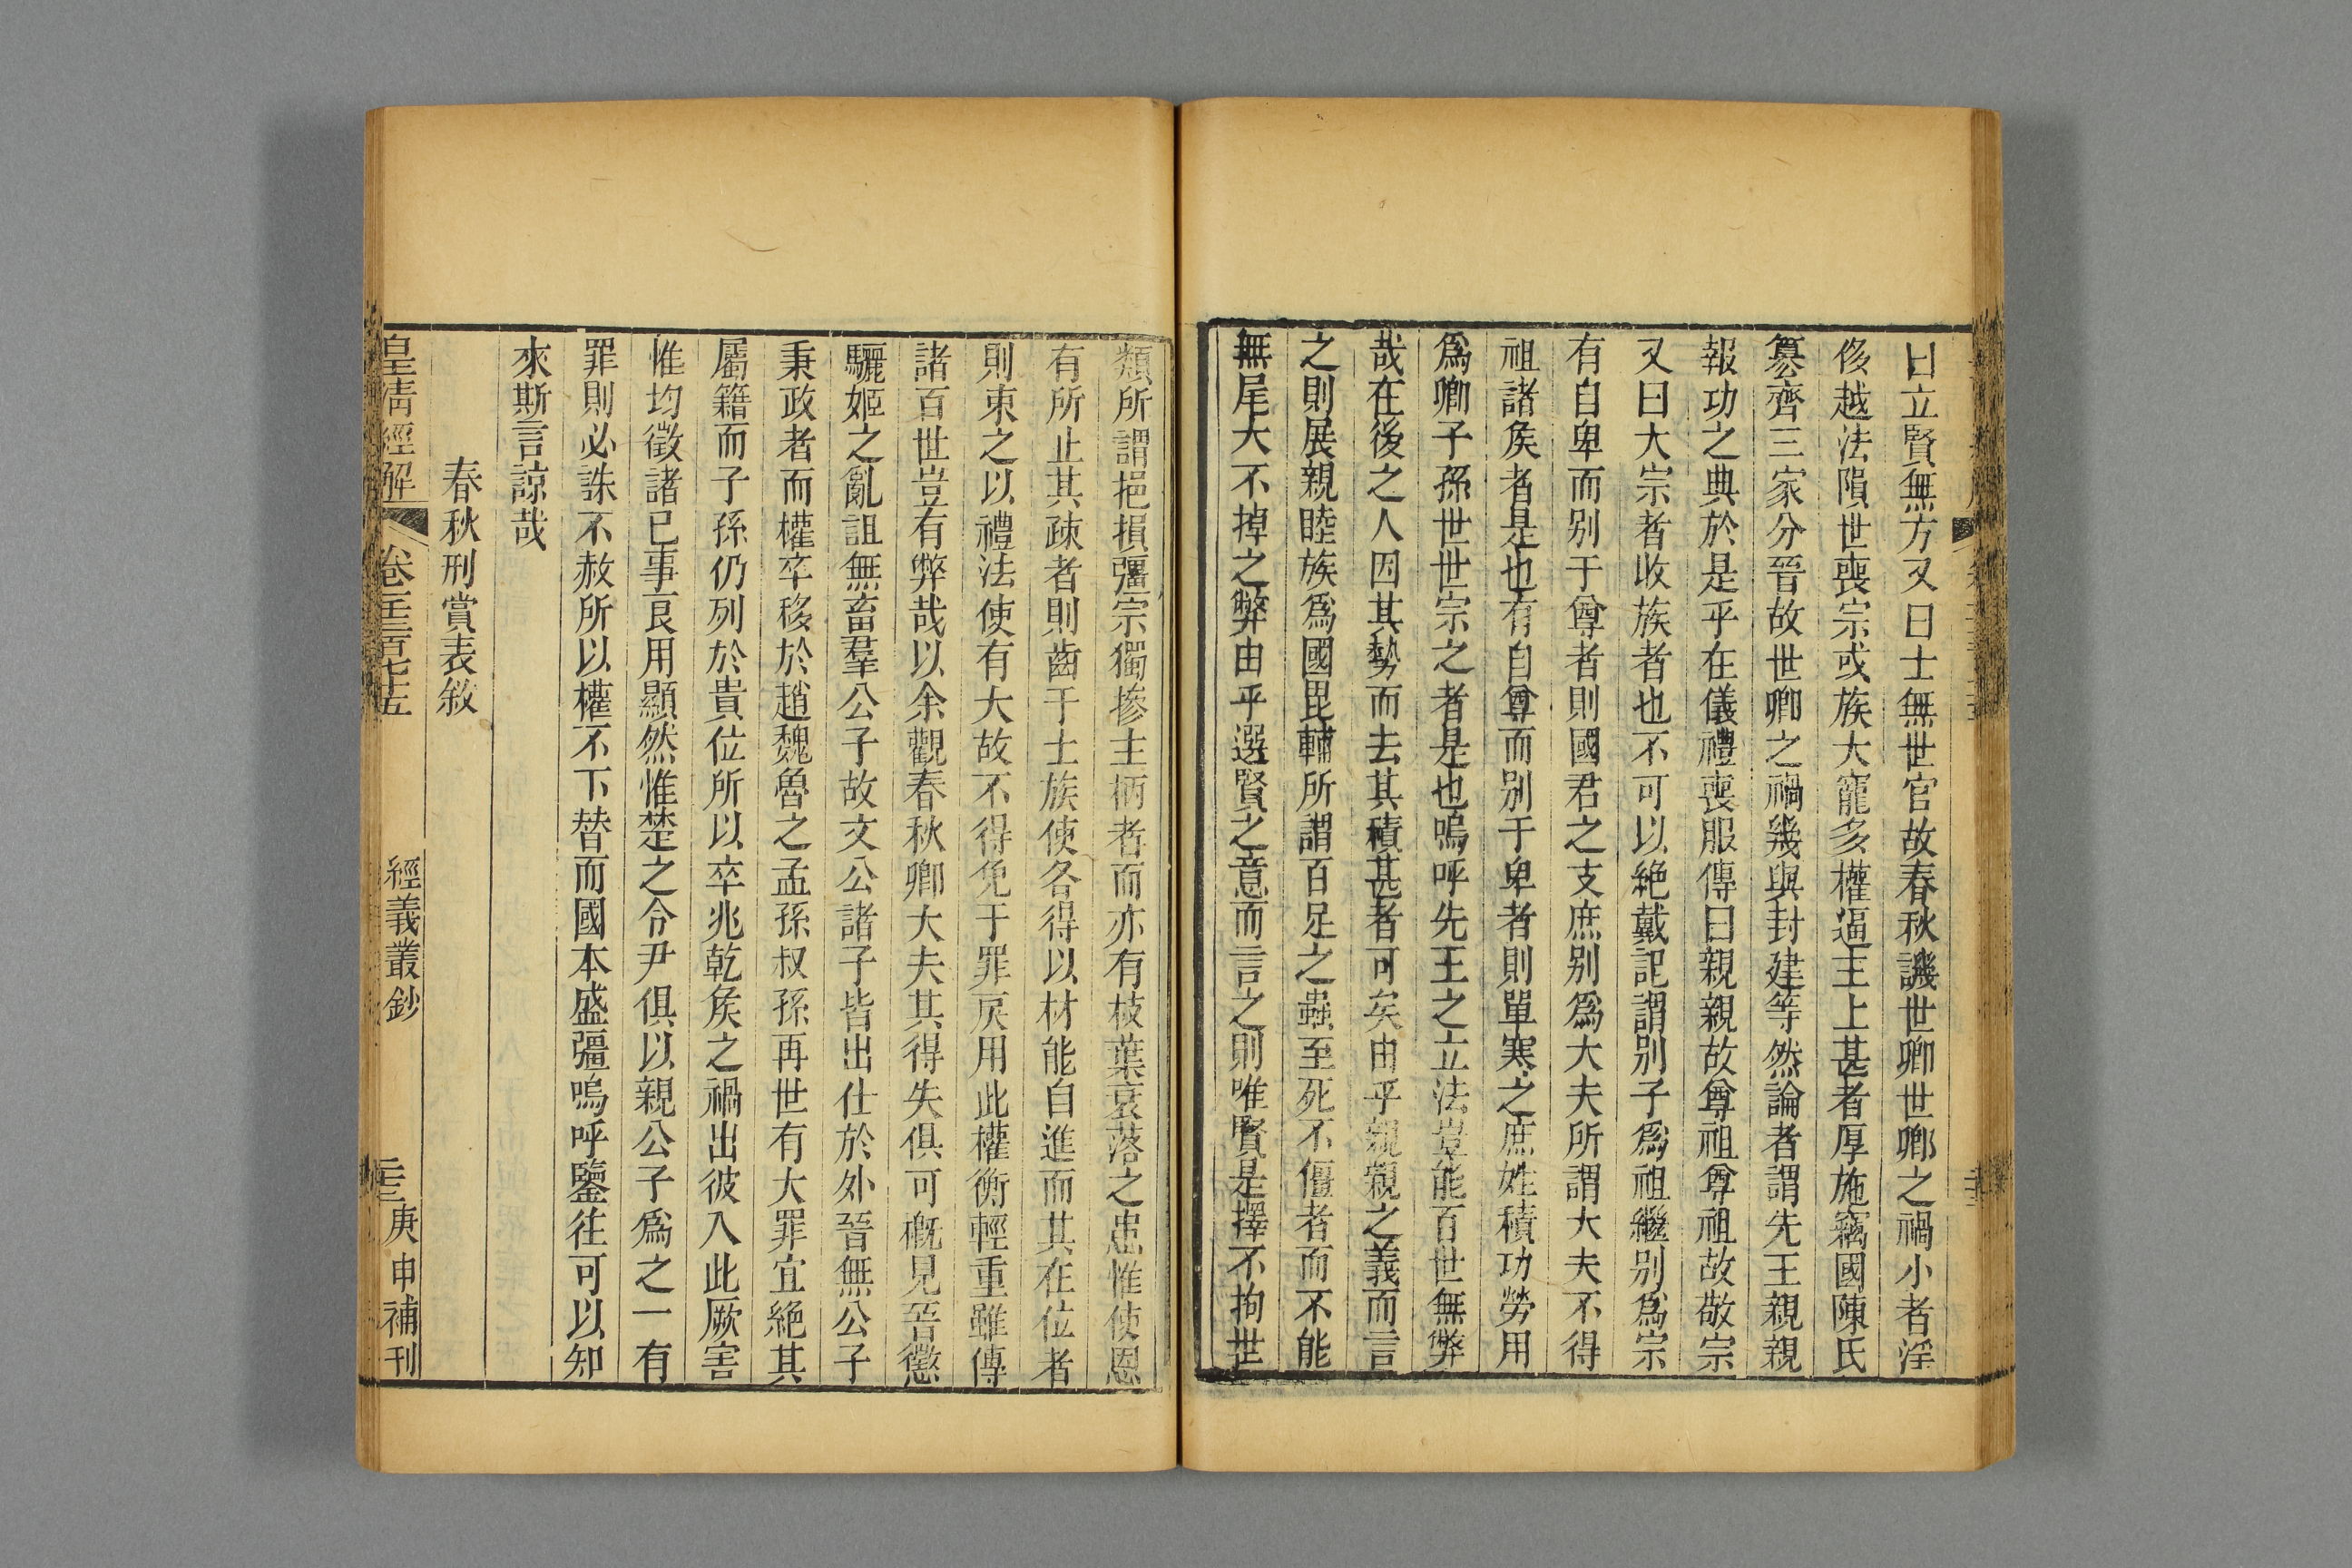 曰立賢無方又曰士無世官故春秋譏世卿世卿之禍小者淫
侈越法隕世喪宗或族大寵多權逼主上甚者厚施竊國陳氏
篡齊三家分晉故世卿之禍幾與封建等然論者謂先王親親
報功之典於是乎在儀禮喪服傳曰親親故尊祖尊祖故敬宗
又曰大宗者收族者也不可以絶戴記謂别子爲祖繼别爲宗
有自卑而别于尊者則國君之支庶别爲大夫所謂大夫不得
祖諸矦者是也有自尊而别于卑者則單寒之庶姓積功勞用
爲卿子孫世世宗之者是也嗚呼先王之立法豈能百世無弊
哉在後之人因其勢而去其積甚者可矣由乎親親之義而言
之則展親睦族爲國毘輔所謂百足之蟲至死不僵者而不能
無尾大不掉之弊由乎選賢之意而言之則唯賢是擇不拘世
類所謂挹損彊宗獨摻主柄者而亦有枝葉衰落之患惟使恩
有所止其疎者則齒于士族使各得以材能自進而其在位者
則束之以禮法使有大故不得免于罪戾用此權衡輕重雖傳
諸百世豈有弊哉以余觀春秋卿大夫其得失俱可槪見晉懲
驪姬之亂詛無畜羣公子故文公諸子皆出仕於外晉無公子
秉政者而權卒移於趙魏魯之孟孫叔孫再世有大罪宜絶其
屬籍而子孫仍列於貴位所以卒兆乾矦之禍出彼入此厥害
惟均徵諸已事良用顯然惟楚之令尹俱以親公子爲之一有
罪則必誅不赦所以權不下替而國本盛彊嗚呼鑒往可以知
來斯言諒哉
春秋刑賞表敘
皇清經解
經義叢鈔
庚申補刊